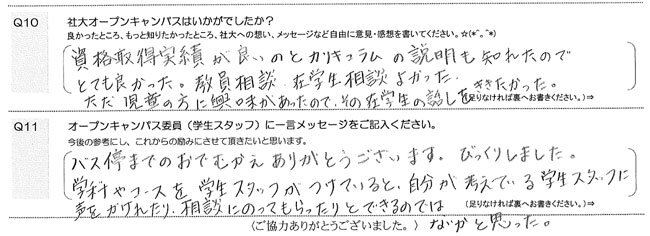 Q10 社大オープンキャンパスはいかがでしたか？
良かったところ、もっと知りたかったところ、社大への想い、メッセージなど自由に意見・感想を書いてください。☆(*^。^*)
資格取得実績が良いのとカリキュラムの説明も知れたので
とても良かった。教員相談、在学生相談よかった。
ただ児童の方に興味があったので、その在学生の話しをききたかった。
（足りなければ裏へお書きください。）⇒
Q11 オープンキャンパス委員（学生スタッフ）に一言メッセージをご記入ください。
今後の参考にし、これからの励みにさせて頂きたいと思います。
バス停までのおでむかえありがとうございます。びっくりしました。
学科やコースを学生スタッフがつけていると、自分が考えている学生スタッフに
声をかけれたり、相談にのってもらったりとできるのでは
（足りなければ裏へお書きください。）⇒
ないかと思った。
（ご協力ありがとうございました。）